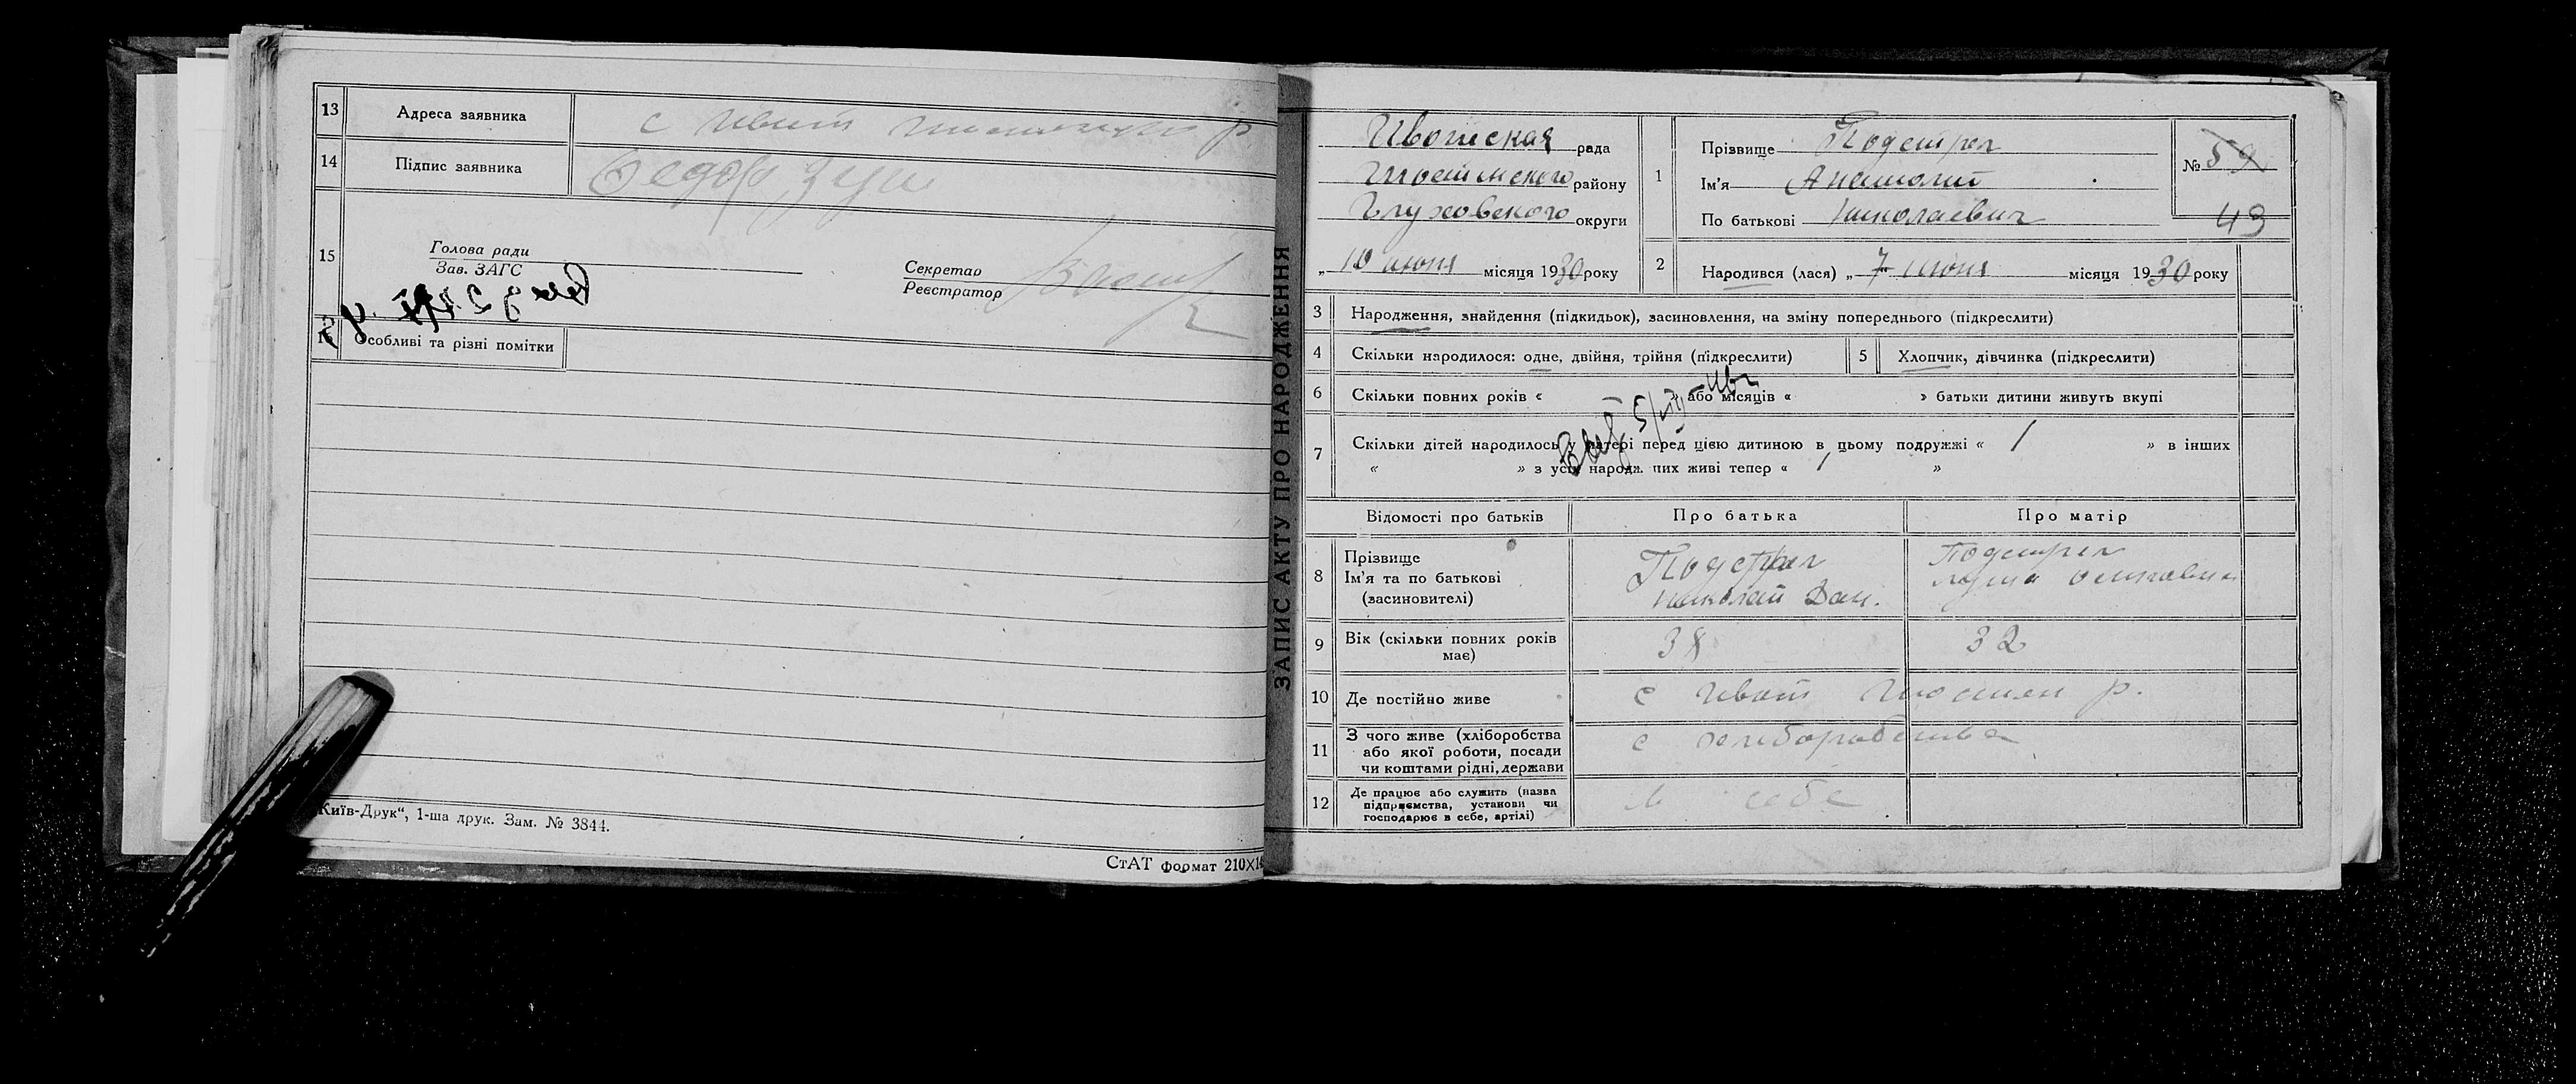 13 Адреса заявника с Ивот р
14 Підпис заявника Федор Зуй
15 Голова ради
Зав. ЗАГС
Секретар
Реєстратор
Особливі та різні помітки
Київ-Друк“, 1-ша друк. Зам. № 3844.
СтАТ формат 210X14
ЗАПИС АКТУ ПРО НАРОДЖЕННЯ
Ивотская рада
Шосткнского району
Глуховского округи
„ 10 июня місяця 1930 року
1 Прізвище Подстрел
Ім'я Анатолий
По батькові Николаевич
№ 59
49
2 Народився (лася) „ 7 июня місяця 1930 року
3 Народження, знайдення (підкидьок), засиновлення, на зміну попереднього (підкреслити)
4 Скільки народилося: одне, двійня, трійня (підкреслити) 5 Хлопчик, дівчинка (підкреслити)
6 Скільки повних років « » або місяців « » батьки дитини живуть вкупі
7 Скільки дітей народилось у матері перед цією дитиною в цьому подружжі « 1 » в інших
« » з усіх народж. них живі тепер « 1 »
Відомості про батьків Про батька Про матір
8 Прізвище
Ім'я та по батькові
(засиновителі)
Подстрел
Николай Дан.
Подстрел
9 Вік (скільки повних років
має) 38 32
10 Де постійно живе с Ивот р.
11 З чого живе (хліборобства
або якої роботи, посади
чи коштами рідні, держави
с
12 Де працює або служить (назва
підприємства, установи чи
господарює в себе, артілі)
себе